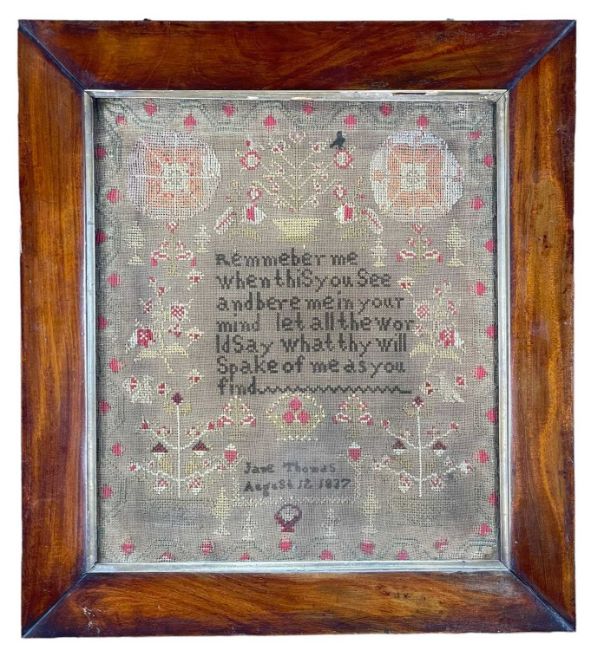 Remmeber me
when thiS you See
and bere me in your
mind let all the wor
ld Say what thy will
Spake of me as you
find
Jane Thomas
August 12 1837